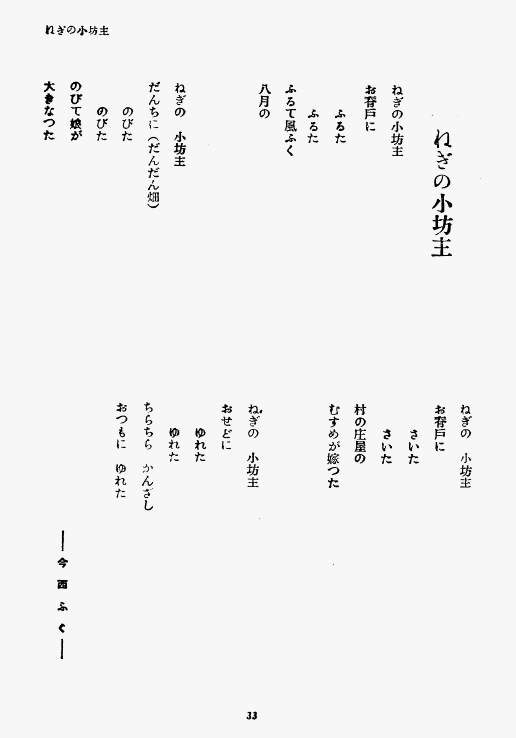 ねぎの小坊主
ねぎの小坊主
ねぎの小坊主
お脊戸に
ふるた
ふるた
ふるて風ふく
八月の
ねぎの　小坊主
だんちに（だんだん畑）
のびた
のびた
のびて娘が
大きなつた
ねぎの　小坊主
お脊戸に
さいた
さいた
村の庄屋の
むすめが嫁つた
ねぎの　小坊主
おせどに
ゆれた
ゆれた
ちらちら　かんざし
おつもに　ゆれた
――今西ふく――
33